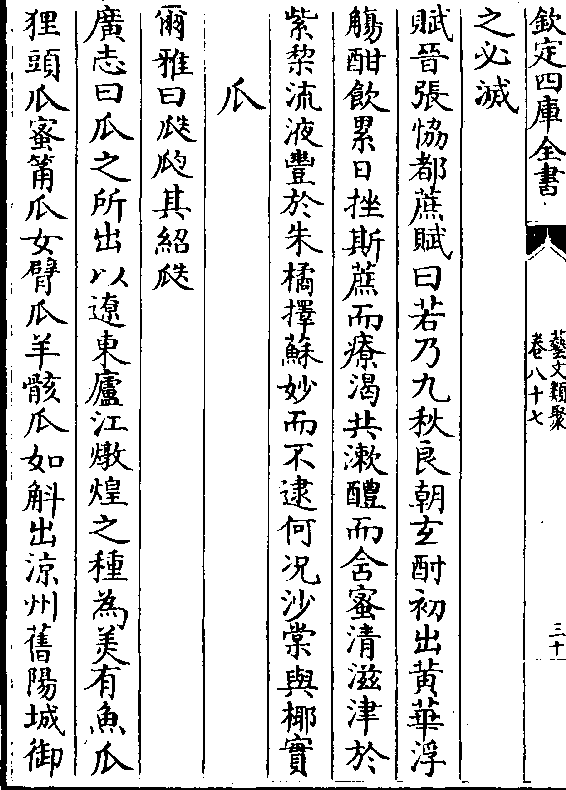 欽定四庫全書
藝文類聚
卷八十七
三十
之必滅
賦晉張恊都蔗賦曰若乃九秋良朝玄酎初出黄華浮
觴酣飲累日挫斯蔗而療渴共漱醴而含蜜清滋津於
紫棃流液豐於朱橘擇蘇妙而不逮何况沙棠與椰實
瓜
爾雅曰瓞瓝其紹瓞
廣志曰瓜之所出以遼東廬江燉煌之種為美有魚瓜
狸頭瓜蜜筩瓜女臂瓜羊骸瓜如斛出涼州舊陽城御